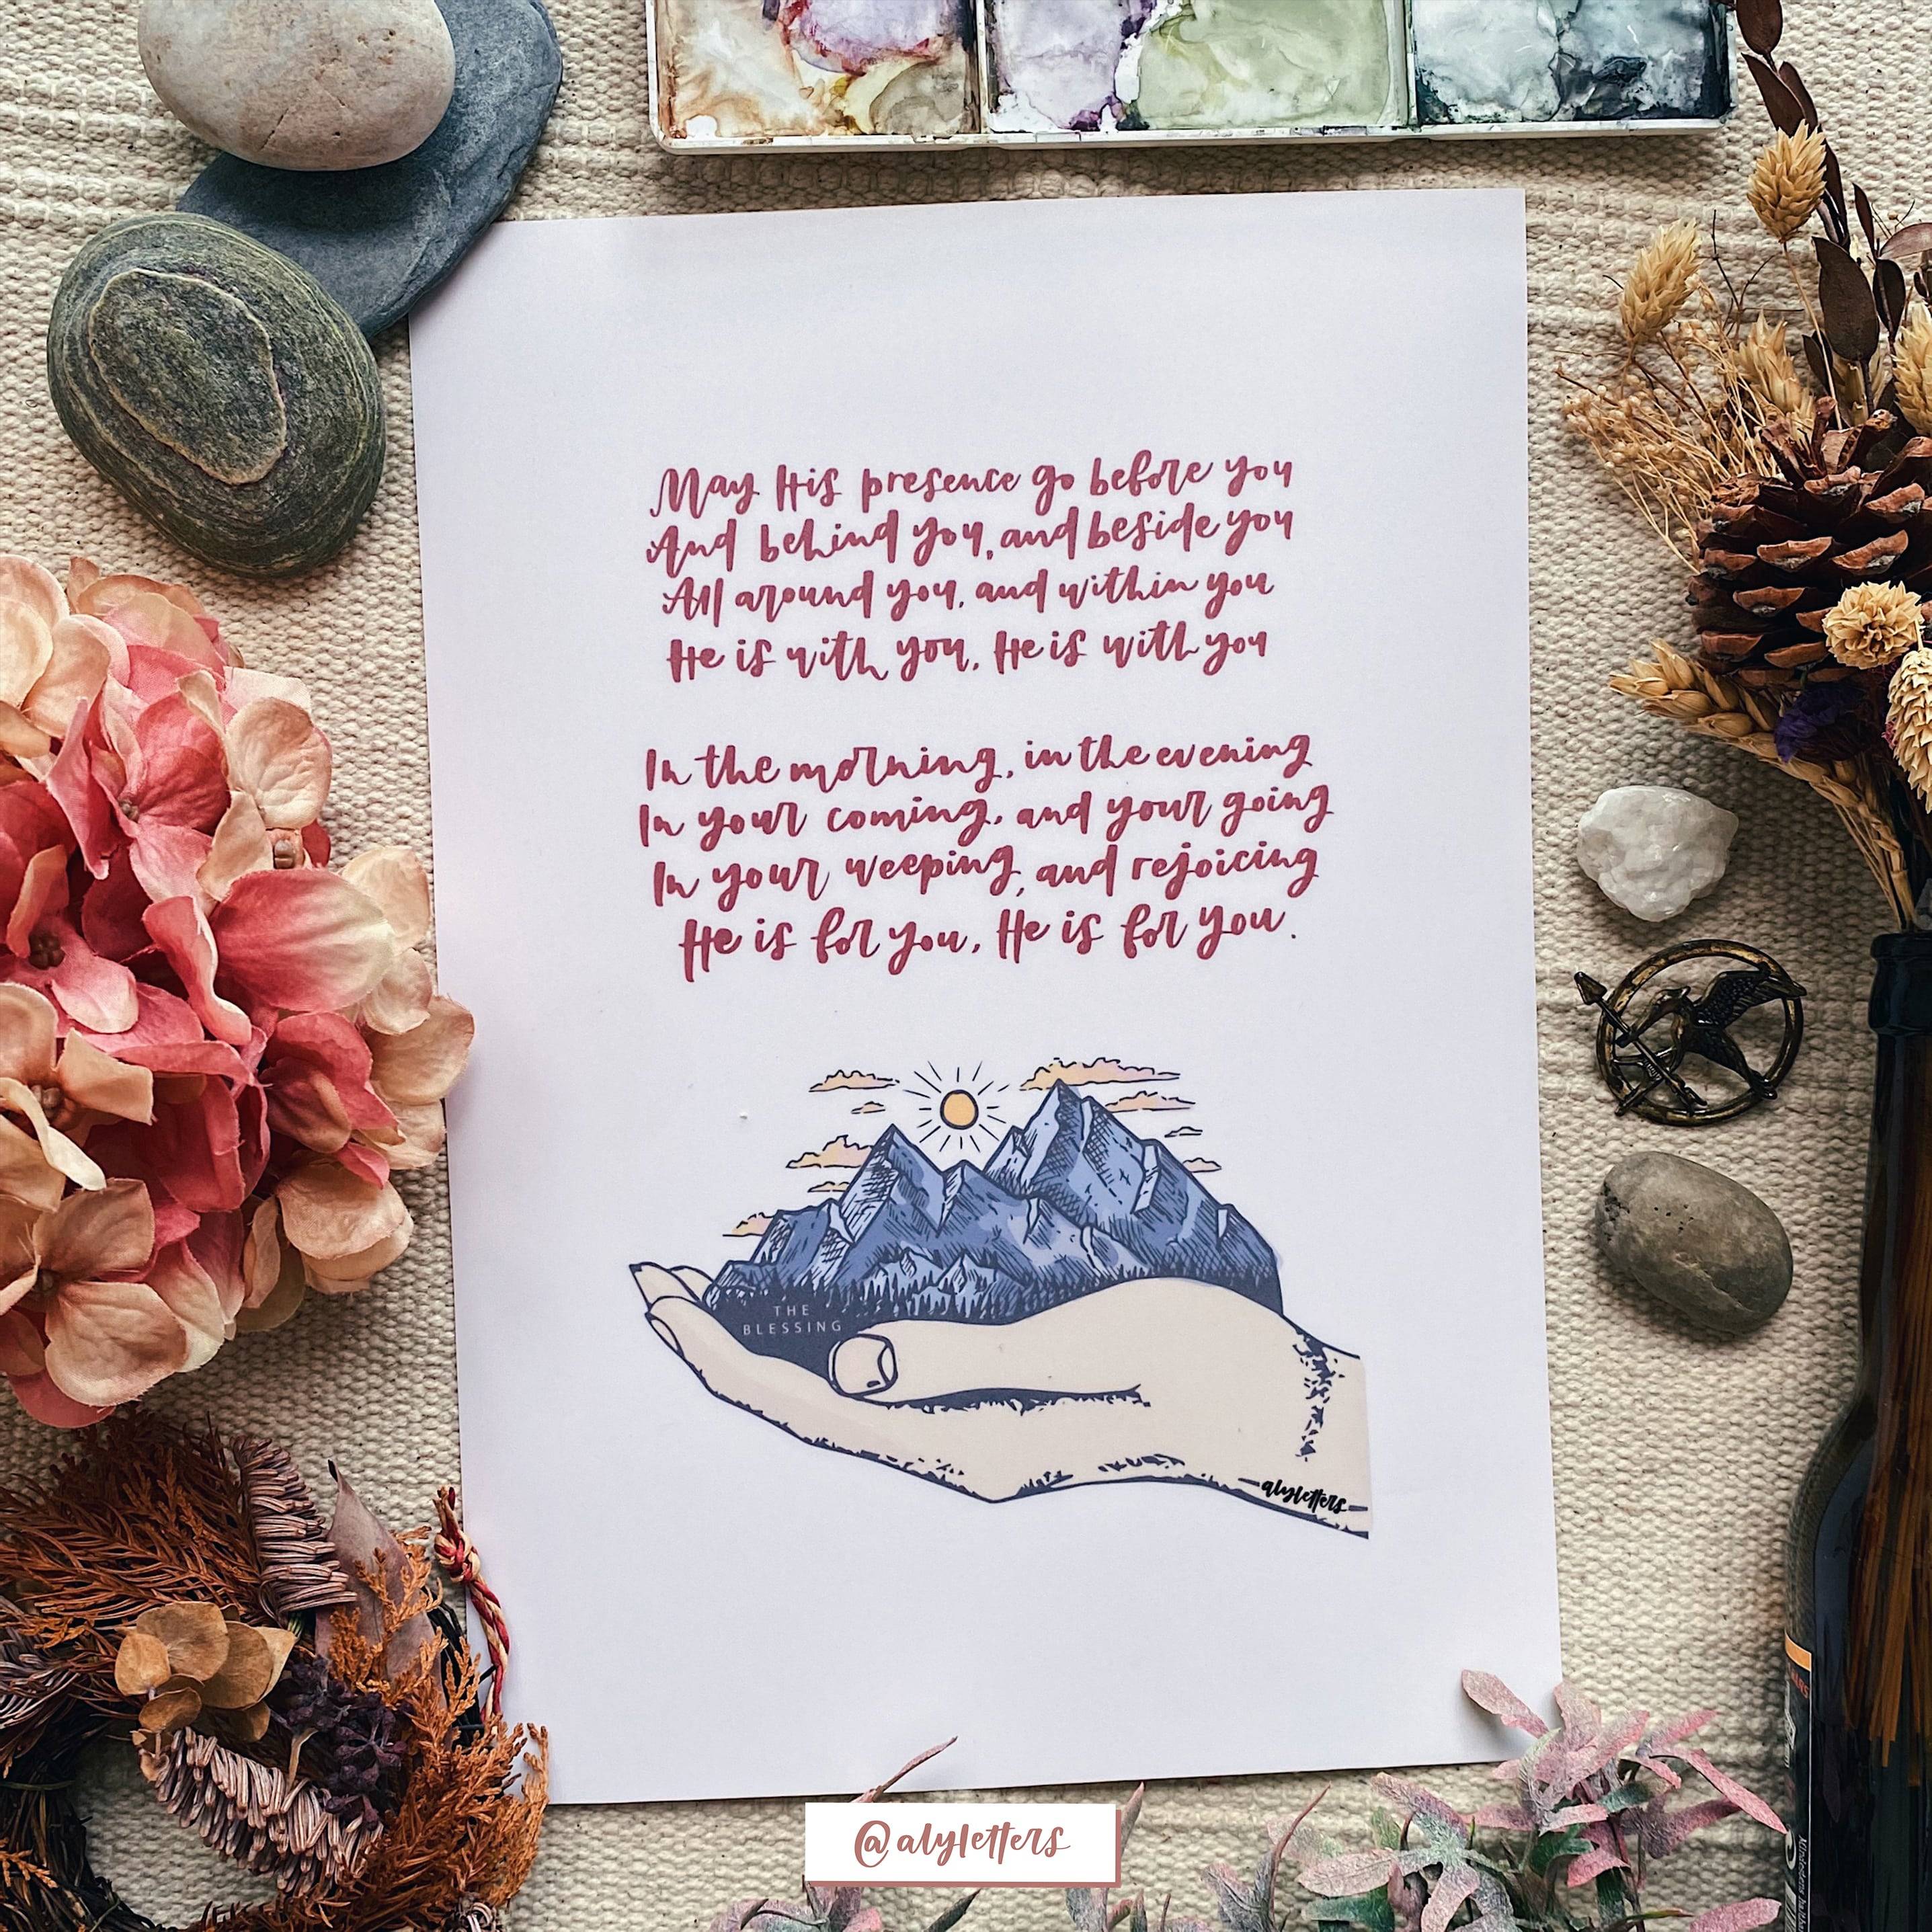 May His presence go before you
And behind you, and beside you
All around you, and within you
He is with you, He is with you
In the morning, in the evening
In your coming, and your going
In your weeping, and rejoicing
He is for you, He is for you.
THE
BLESSING
alyletters
@alyletters